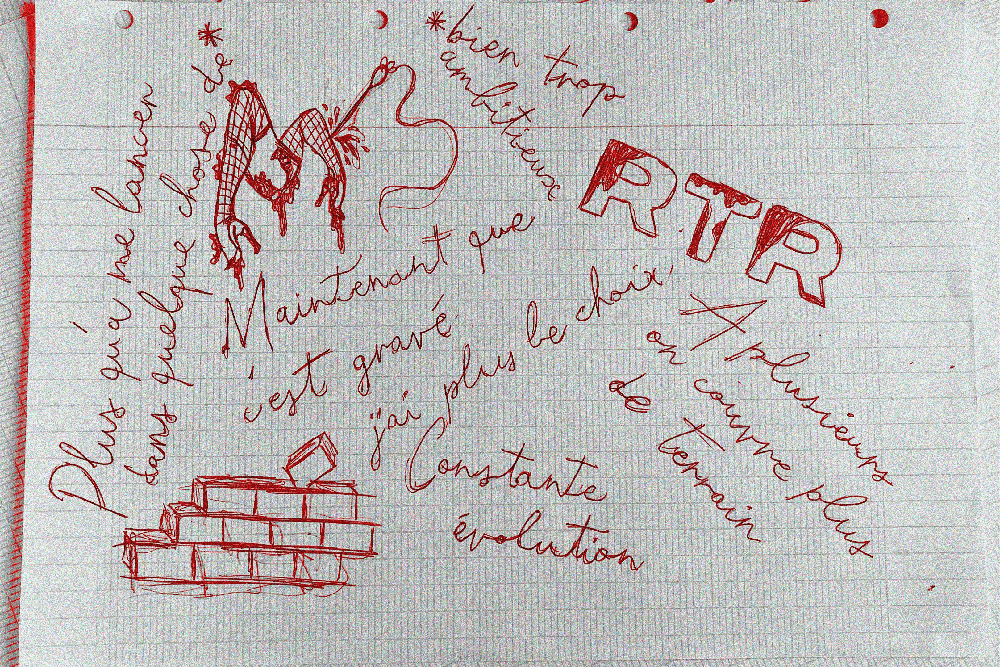 Plus qu'à me lancer
dans quelque chose de*
*bien trop
ambitieux
RTR
Maintenant que
c'est gravé
j'ai plus le choix
A plusieurs
on couvre plus
de terrain
Constante
évolution